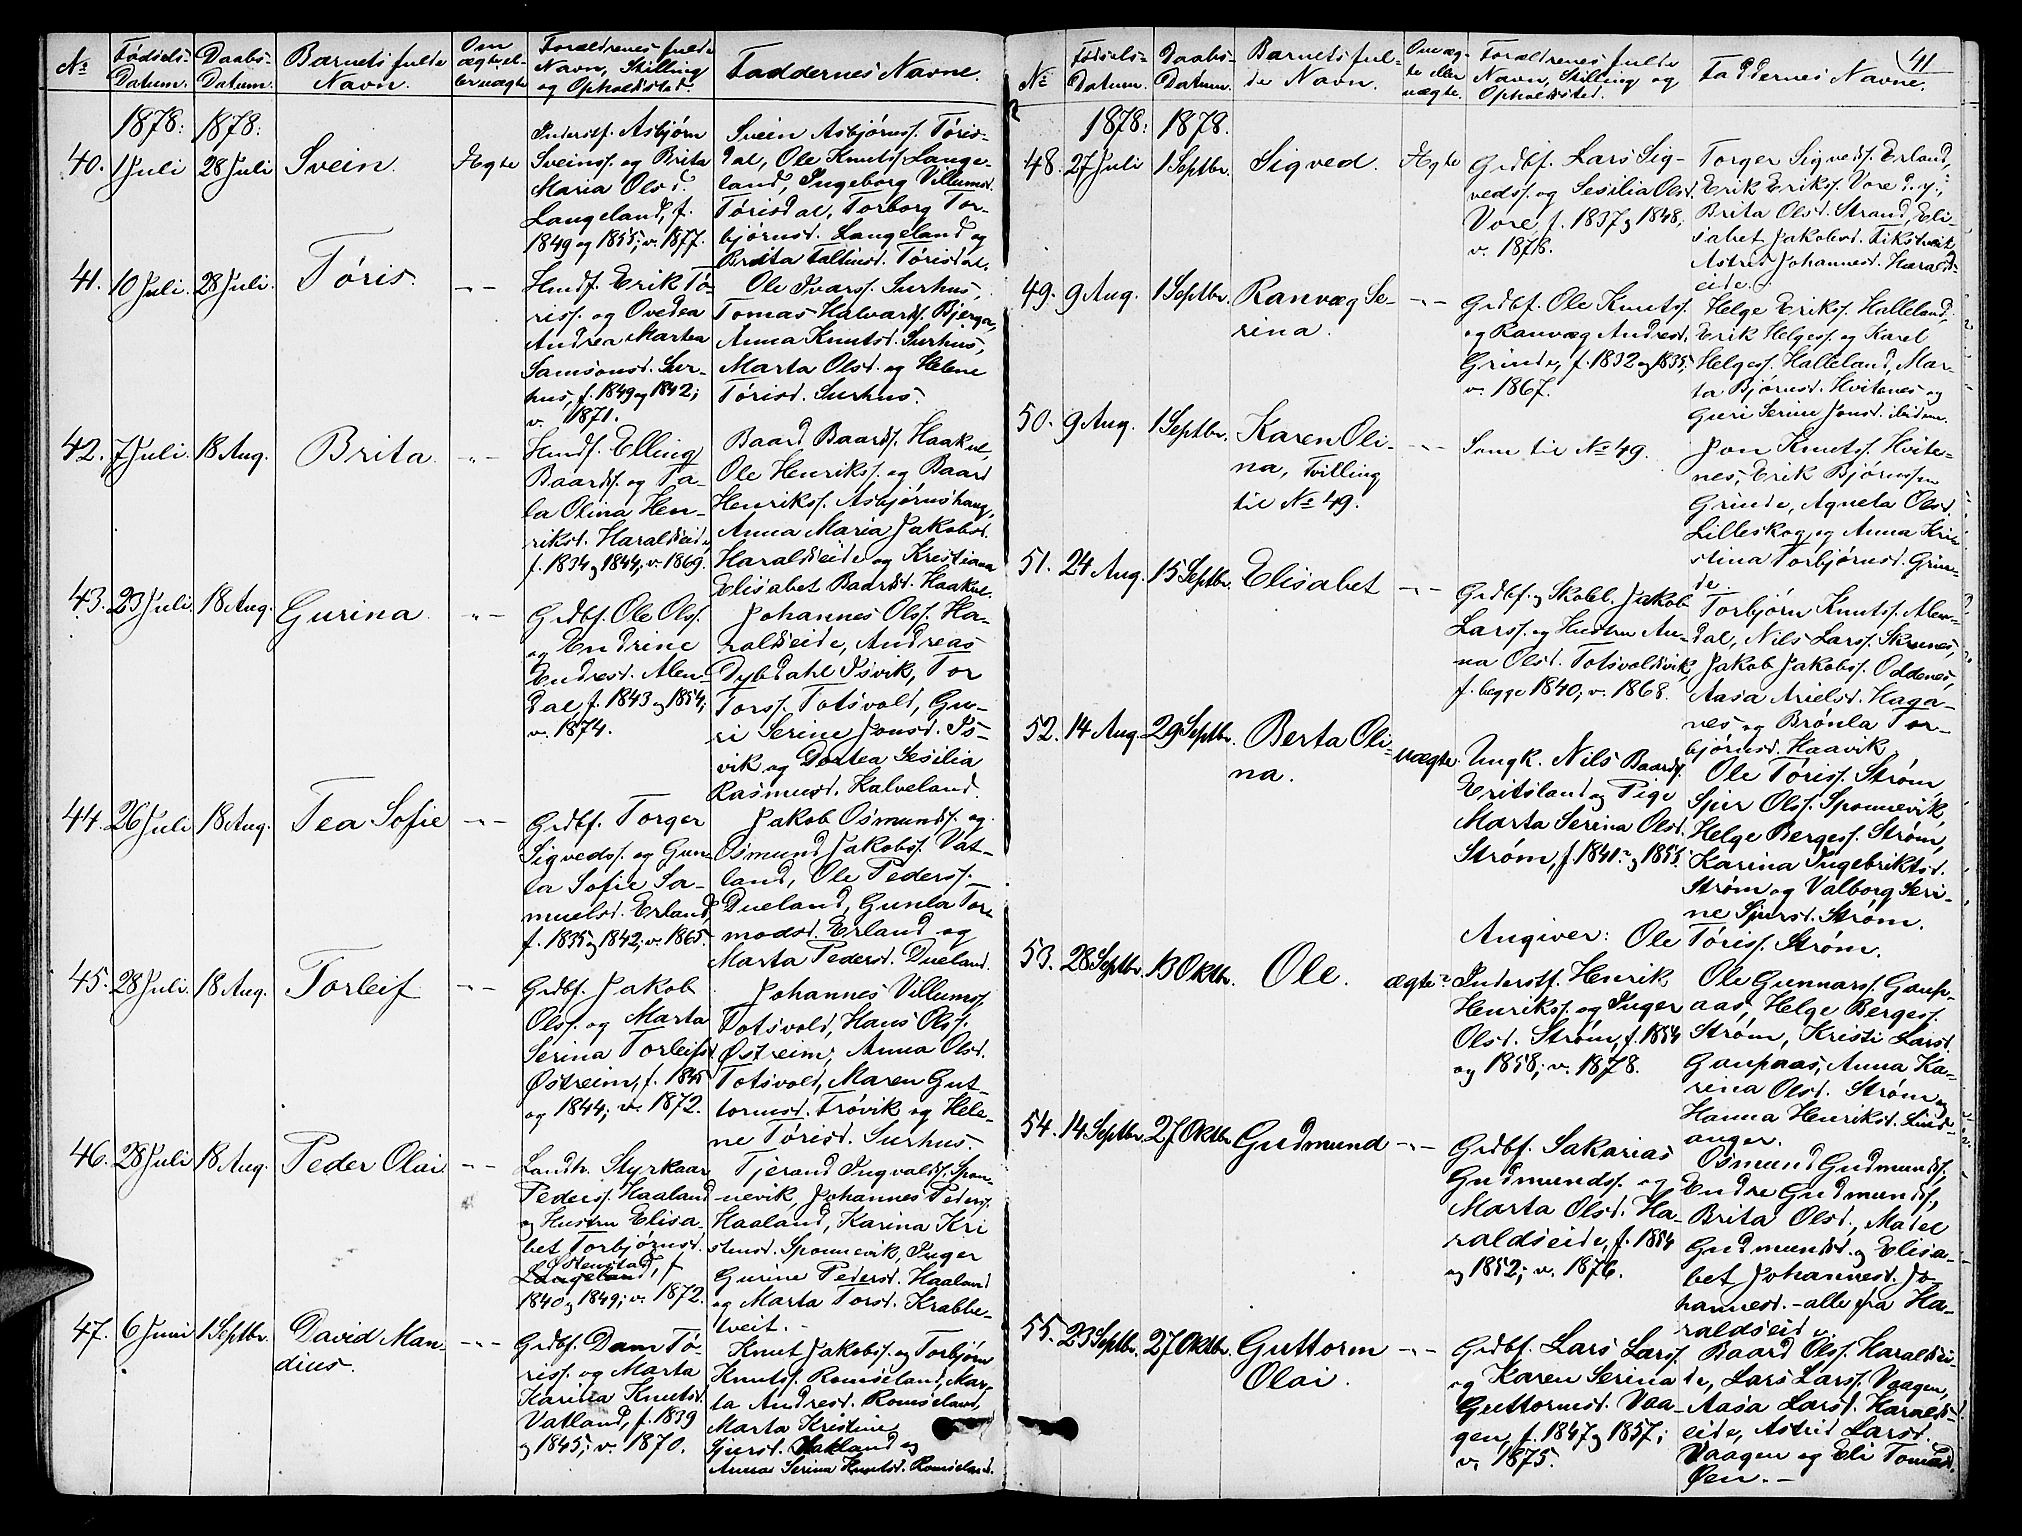 № Fødsels-Datum. Daabs-Datum. Barnets fulde Navn. Om ægte el-ler uægte Forældrenes fulde Navn, Stilling og Opholdssted. Faddernes Navne.
1878: 1878:
40. 1 Juli 28 Juli Svein. Ægte
Inderstf. Asbjørn
Sveinss. og Brita
Maria Olsd.
Langeland, f.
1849 og 1855; v. 1877.
Svein Asbjørnss. Tøris-
dal, Ole Knutss. Lange-
land, Ingeborg Villumsd.
Tørisdal, Torborg Tor-
bjørnsd. Langeland og
Brita Taltinsd. Tørisdal.
41. 10 Juli. 28 Juli. Tøris. -"-
Husmf. Erik Tø-
riss. og Ovedea
Andrea Martea
Samsonsd. Sur-
hus, f. 1849 og 1842;
v. 1871.
Ole Ivarss. Surhus,
Tomas Halvards. Bjerga,
Anna Knutsd. Surhus,
Marta Olsd. og Helene
Tørisd. Surhus.
42. 7 Juli 18 Aug. Brita -"-
Husmf. Elling
Baardss. og Ta-
la Olina Hen-
riksd. Haraldseide
f. 1834 og 1844; v. 1869.
Baard Baardss. Haakul,
Ole Henrikss. og Baard
Henrikss. Asbjørnshaug,
Anna Maria Jakobsd.
Haraldseide og Kristiana
Elisabet Baardsd. Haakul.
43. 23 Juli 18 Aug. Gurina. -"-
Grdbf. Ole Olss.
og Endrine
Endresd. Alen-
dal f. 1843 og 1854;
v. 1874.
Johannes Olss. Ha-
raldseide, Andreas
Dybdahl Isvik, Tor
Torss. Totsvold, Gu-
ri Serine Jonsd. Is-
vik og Dortea Sesilia
Rasmusd. Kalveland.
44. 26 Juli 18 Aug. Tea Sofie -"-
Grdbf. Torger
Sigvedss. og Gun-
la Sofie Sa-
muelsd. Erland,
f. 1835 og 1842; v. 1865.
Jakob Osmundss. og
Osmund Jakobss. Vat-
land, Ole Pederss.
Dueland, Gunla Tor-
modsd. Erland og
Marta Pedersd. Dueland.
45. 28 Juli. 18 Aug. Torleif -"-
Grdbf. Jakob
Olss. og Marta
Serina Torleifsd
Østreim, f. 1845
og 1844; v. 1872.
Johannes Villumss.
Totsvold, Hans Olss.
Østreim, Anna Olsd.
Totsvold, Maren Gut-
tormsd. Frøvik og Hele-
ne Tørisd. Surhus
46. 28 Juli 18 Aug. Peder Olai -"-
Landh. Styrkaar
Pederss. Haaland
og Hustru Elisa-
bet Torbjørnsd.
Stenstad, f
Langeland,
1840 og 1849; v. 1872.
Tjerand Ingvaldss. Spon-
nevik, Johannes Pederss.
Haaland, Karina Kri
stensd. Sponnevik, Inger
Gurine Pedersd. Haaland
og Marta Torsd. Krabbe-
tveit.
47. 6 Juni 1 Septbr. David Man-
dius. -"-
Grdbf. Dam Tø-
riss. og Marta
Karina Knutsd.
Vatland, f. 1839
og 1845; v. 1870.
Knut Jakobss. og Torbjørn
Knutss. Romseland, Mar-
ta Andresd. Romseland,
Marta Kristine
Sjursd. Vakland og
Anna Serina Knutsd. Romseland.
41
№ Fødsels-Datum. Daabs-Datum. Barnets ful-de Navn. Om æg-te eller uægte. Forældrenes fulde Navn, Stilling og Opholdssted. Faddernes Navne.
1878: 1878.
48. 27 Juli 1 Septbr. Sigved. Ægte
Grdbf. Lars Sig-
vedss. og Sesilia Olsd.
Vore, f. 1837 og 1848;
v. 1878.
Torger Sigvedss. Erland,
Erik Erikss. Vore d. y.;
Brita Olsd. Strand, Eli-
sabet Jakobsd. Fikstveit
Astrid Johannesd. Harald-
seide.
49. 9 Aug. 1 Septbr. Ranvæg Se-
rina. -"-
Grdbf. Ole Knutss.
og Ranvæg Andresd.
Grinde, f. 1832 og 1835;
v. 1867.
Helge Erikss. Halleland,
Erik Helgess. og Karel
Helgess. Halleland, Mar-
ta Bjørnsd. Hvitenes og
Guri Serine Jonsd. ibidem.
50. 9 Aug. 1 Septbr. Karen Oli-
na, Tvilling
til № 49. -"-
Som til № 49.
Jon Knutss. Hvite-
nes, Erik Bjørnss.
Grinde, Agneta Olsd.
Lilleskog og Anna Kri-
stina Torbjørnsd. Grin-
de.
51. 24 Aug. 15 Septbr. Elisabet -"-
Grdbf. og Skoll. Jakob
Larss. og Hustru An-
na Olsd. Totsvoldsvik,
f. begge 1840; v. 1868.
Torbjørn Knutss. Alen-
dal, Nils Larss. Skrunes,
Jakob Jakobss. Oddenes,
Aasa Arielsd. Haga-
nes og Brønla Tor-
bjørnsd. Haavik.
52. 14 Aug. 29 Septbr. Berta Oli-
na. uægte.
Ungk. Nils Baardss.
Eritsland og Pige
Marta Serina Olsd.
Strøm, f. 1841? og 1855.
Ole Tøriss. Strøm,
Sjur Olss. Sponnevik,
Helge Bergess. Strøm,
Karina Ingebriktsd.
Strøm og Valborg Seri-
ne Sjursd. Strøm.
Angiver: Ole Tøriss. Strøm.
53. 28 Septbr. 13 Oktbr. Ole. ægte?
Inderstf. Henrik
Henrikss. og Inger
Olsd. Strøm, f. 1854
og 1858; v. 1878.
Ole Gunnarss. Gaup-
aas, Helge Bergess.
Strøm, Kristi Larsd.
Gaupaas, Anna Ka-
rina Olsd. Strøm og
Hanna Henriksd. Lind-
anger.
54. 14 Septbr. 27 Oktbr. Gudmund -"-
Grdbf. Sakarias
Gudmundss. og
Marta Olsd. Ha-
raldseide, f. 1854
og 1852; v. 1876.
Osmund Gudmundss.,
Endre Gudmundss.,
Brita Olsd., Madel
Gudmundsd. og Elisa-
bet Johannesd. Jo-
hannesd. - alle fra Ha-
raldseide.
55. 23 Septbr. 27 Oktbr. Guttorm
Olai. -"-
Grdbf. Lars Larss.
og Karen Serina
Guttormsd. Vaa-
gen, f. 1847 og 1857;
v. 1875.
Baard Olss. Haraldsei-
de, Lars Larss. Vaagen,
Aasa Larsd. Harald-
seide, Astrid Larsd.
Vaagen og Eli Tomasd.
Øen.